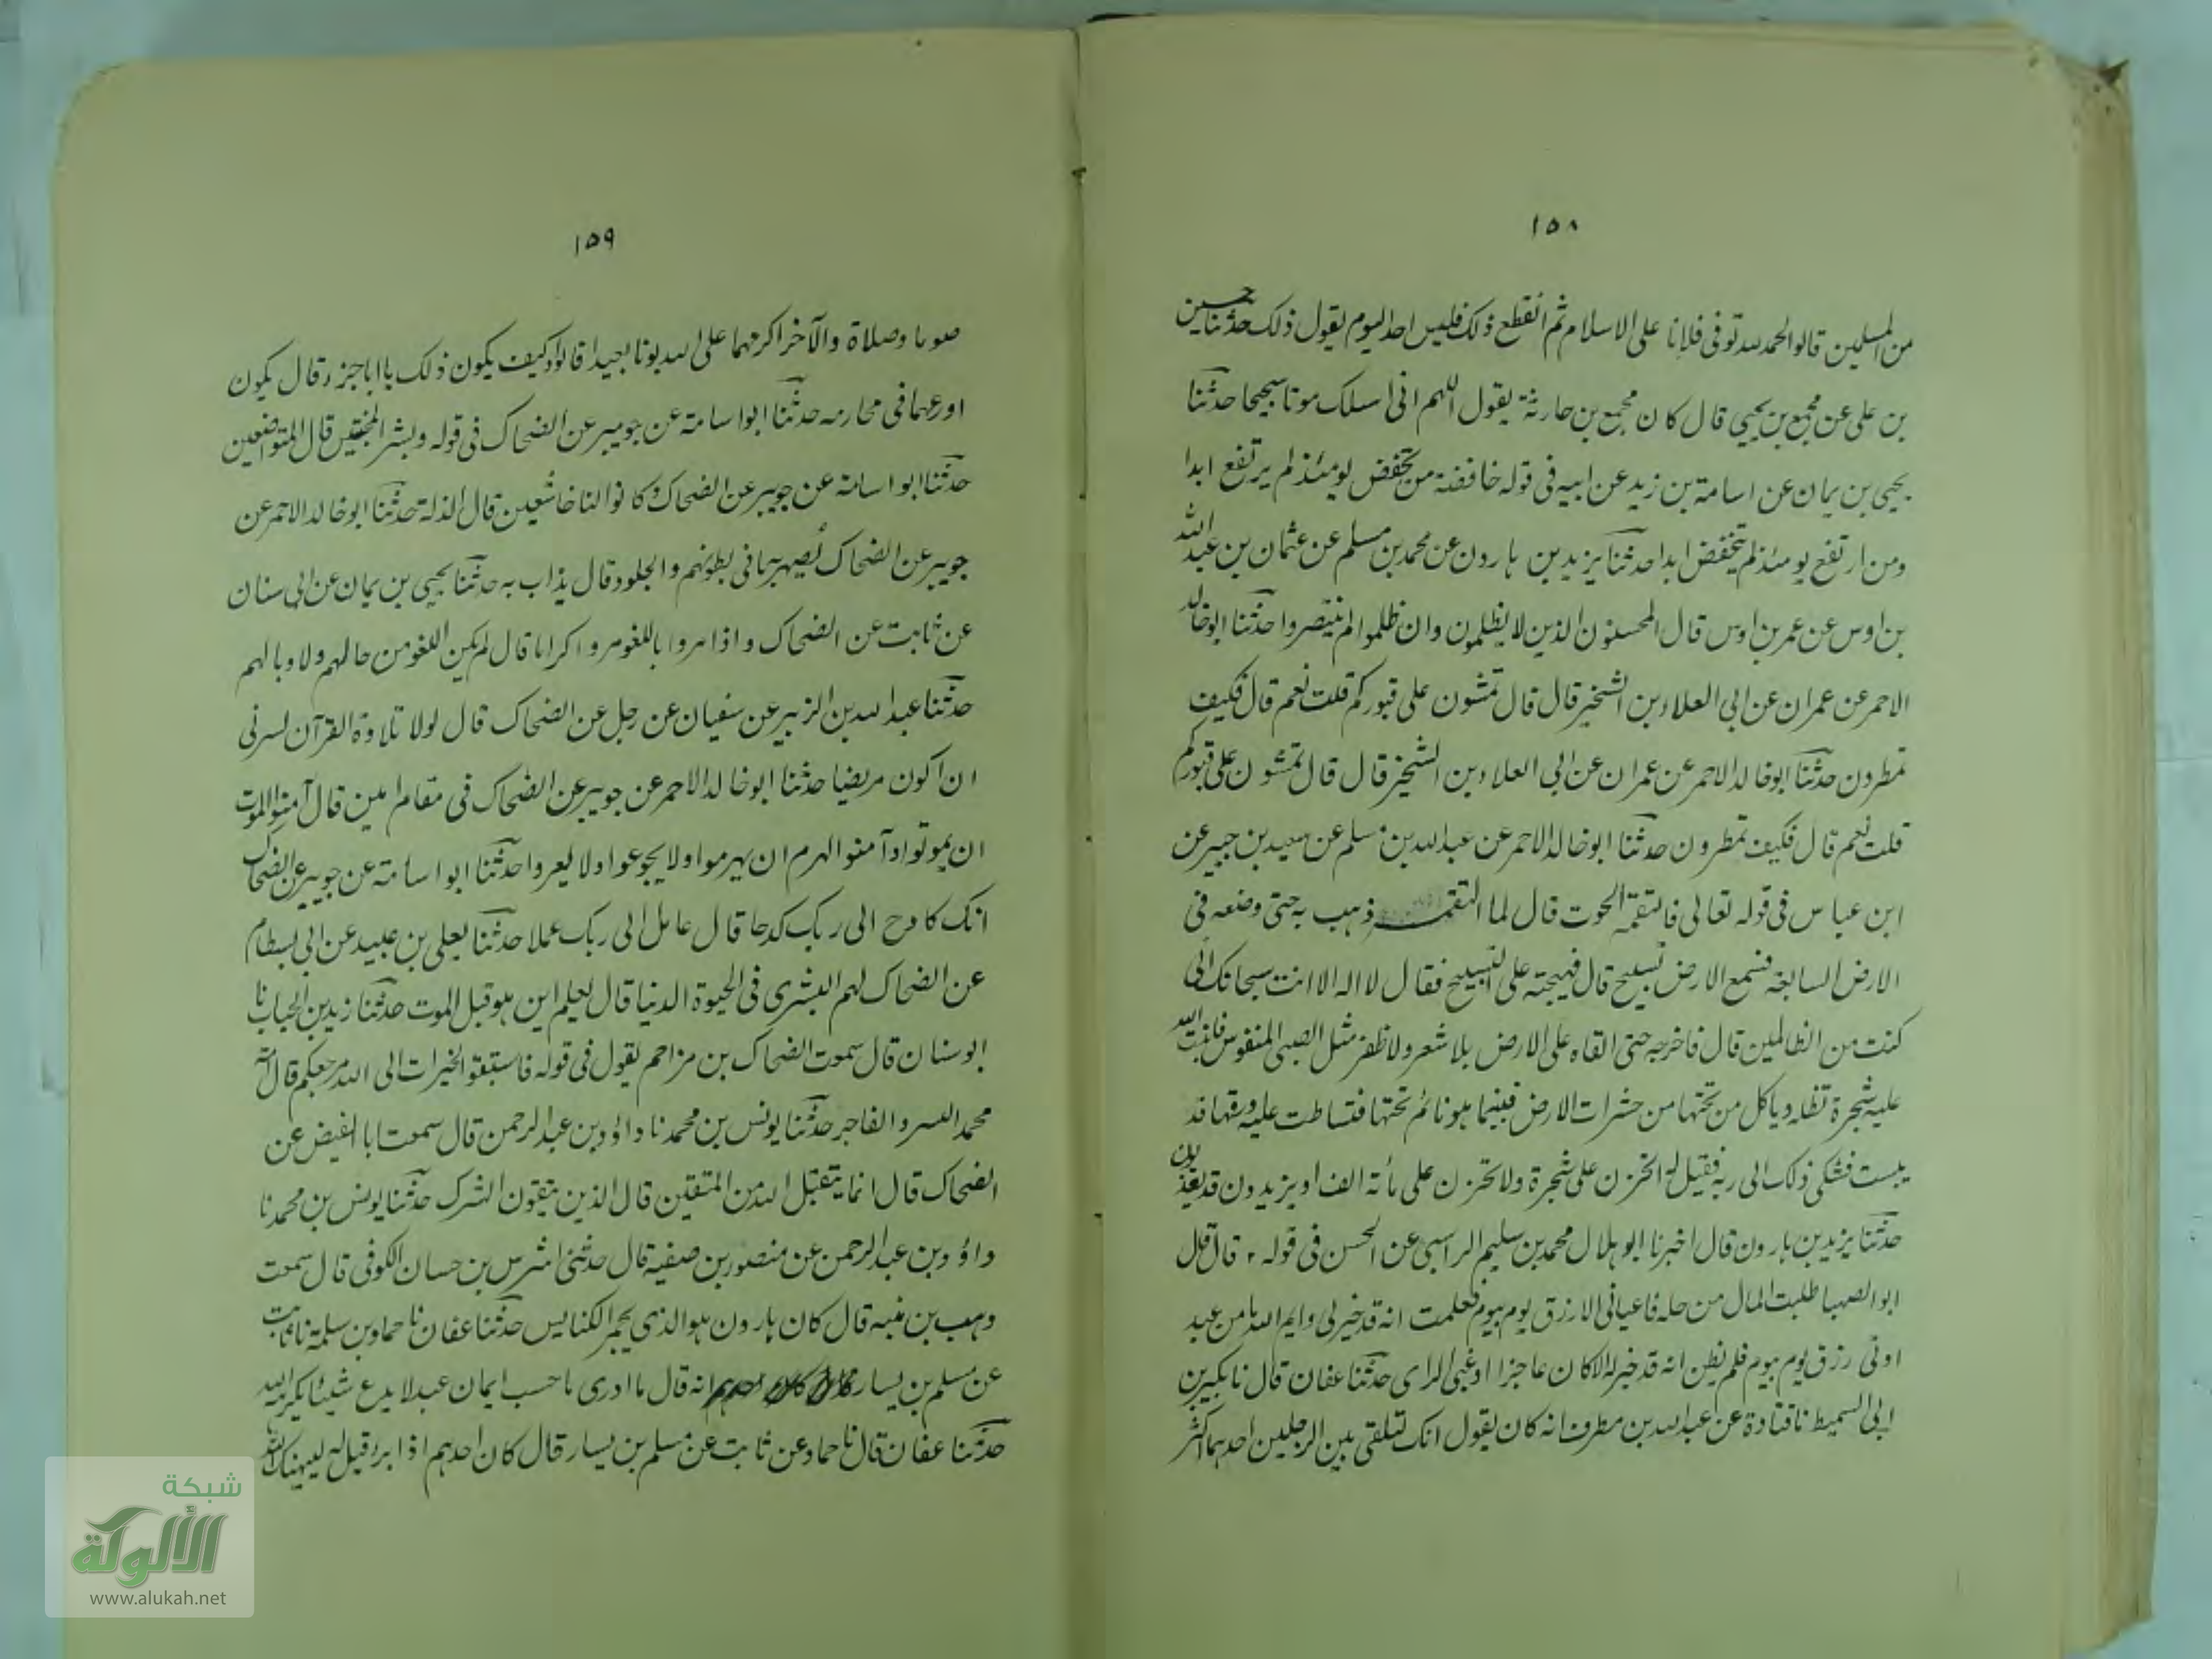 ١٥٨
من المسلمين قالوا الحمد لله توفى فلانا على الاسلام ثم انقطع ذلك فليس احد اليوم يقول ذلك حدثنا حسين
بن على عن مجمع بن يحيى قال كان مجمع بن حارثة يقول اللهم انى اسلك موتا سجيحا حدثنا
يحيى بن يمان عن اسامة بن زيد عن ابيه فى قوله خافضة من تخفض يومئذ لم يرتفع ابدا
ومن ارتفع يومئذ لم يتخفض ابدا حدثنا يزيد بن هارون عن محمد بن مسلم عن عثمان بن عبد الله
بن اوس عن عمر بن اوس قال المحسنون الذين لا يظلمون وان ظلموا لم ينتصروا حدثنا ابو خالد
الاحمر عن عمران عن ابى العلاء بن الشخير قال قال تمشون على قبوركم قلت نعم قال فكيف
تمطرون حدثنا ابو خالد الاحمر عن عمران عن ابى العلاء بن الشخير قال قال تمشون على قبوركم
قلت نعم قال فكيف تمطرون حدثنا ابو خالد الاحمر عن عبد الله بن مسلم عن سعيد بن جبير عن
ابن عباس فى قوله تعالى فالتقمه الحوت قال لما التقمه ذهب به حتى وضعه فى
الارض السابعة فسمع الارض تسبيح قال فهيجته على التسبيح فقال لا اله الا انت سبحانك انى
كنت من الظالمين قال فاخرجه حتى القاه على الارض بلا شعر ولا ظفر مثل الصبى المنفوس فانبت الله
عليه شجرة تظله وياكل من تحتها من حشرات الارض فبينما هو نائم تحتها فتساطت عليه ورقها قد
يبست فشكى ذلك الى ربه فقيل له اتحزن على شجرة ولا تحزن على مأئة الف او يزيدون قد يعذبون
حدثنا يزيد بن هارون قال اخبرنا ابو هلال محمد بن سليم الراسبى عن الحسن فى قوله ٢ قال قال
ابو الصهبا طلبت المال من حله فاعيانى الا رزق يوم بيوم فعلمت انه قد خير لى وايم الله ما من عبد
اوتى رزق يوم بيوم فلم يظن انه قد خير له الا كان عاجزا او غبى الراى حدثنا عفان قال نا بكير بن
ابى السميط نا قتادة عن عبد الله بن مطرف انه كان يقول انك لتلقى بين الرجلين احدهما اكثر
١٥٩
صوما وصلاة والآخر اكرمهما على الله بونا بعيدا قالوا وكيف يكون ذلك يا ابا جزء قال يكون
اورعهما فى محارمه حدثنا ابو اسامة عن جويبر عن الضحاك فى قوله وبشر المخبتين قال المتواضعين
حدثنا ابو اسامة عن جويبر عن الضحاك وكانوا لنا خاشعين قال الذلة حدثنا ابو خالد الاحمر عن
جويبر عن الضحاك يُصهر به ما فى بطونهم والجلود قال يذاب به حدثنا يحيى بن يمان عن ابى سنان
عن ثابت عن الضحاك واذا مروا باللغو مروا كراما قال لم يكن اللغو من حالهم ولا وبالهم
حدثنا عبد الله بن الزبير عن سفيان عن رجل عن الضحاك قال لولا تلاوة القرآن لسرنى
ان اكون مريضا حدثنا ابو خالد الاحمر عن جويبر عن الضحاك فى مقام امين قال آمنوا الموت
ان يموتوا وآمنوا الهرم ان يهرموا ولا يجوعوا ولا يعروا حدثنا ابو اسامة عن جويبر عن الضحاك
انك كادح الى ربك كدحا قال عامل الى ربك عملا حدثنا يعلى بن عبيد عن ابى بسطام
عن الضحاك لهم البشرى فى الحيوة الدنيا قال يعلم اين هو قبل الموت حدثنا زيد بن الحباب نا
ابو سنان قال سمعت الضحاك بن مزاحم يقول فى قوله فاستبقوا الخيرات الى الله مرجعكم قال امة
محمد البر والفاجر حدثنا يونس بن محمد نا داؤد بن عبد الرحمن قال سمعت ابا الفيض عن
الضحاك قال انما يتقبل الله من المتقين قال الذين يتقون الشرك حدثنا يونس بن محمد نا
داؤد بن عبد الرحمن عن منصور بن صفية قال حدثنى اشرس بن حسان الكوفى قال سمعت
وهب بن منبه قال كان هارون هو الذى يجمر الكنايس حدثنا عفان نا حماد بن سلمة نا ثابت
عن مسلم بن يسار انه قال ما ادرى ما حسب ايمان عبد لا يدع شيئا يكرهه الله
حدثنا عفان قال نا حماد عن ثابت عن مسلم بن يسار قال كان احدهم اذا برء قيل له ليهنك
شبكة
الألوكة
www.alukah.net